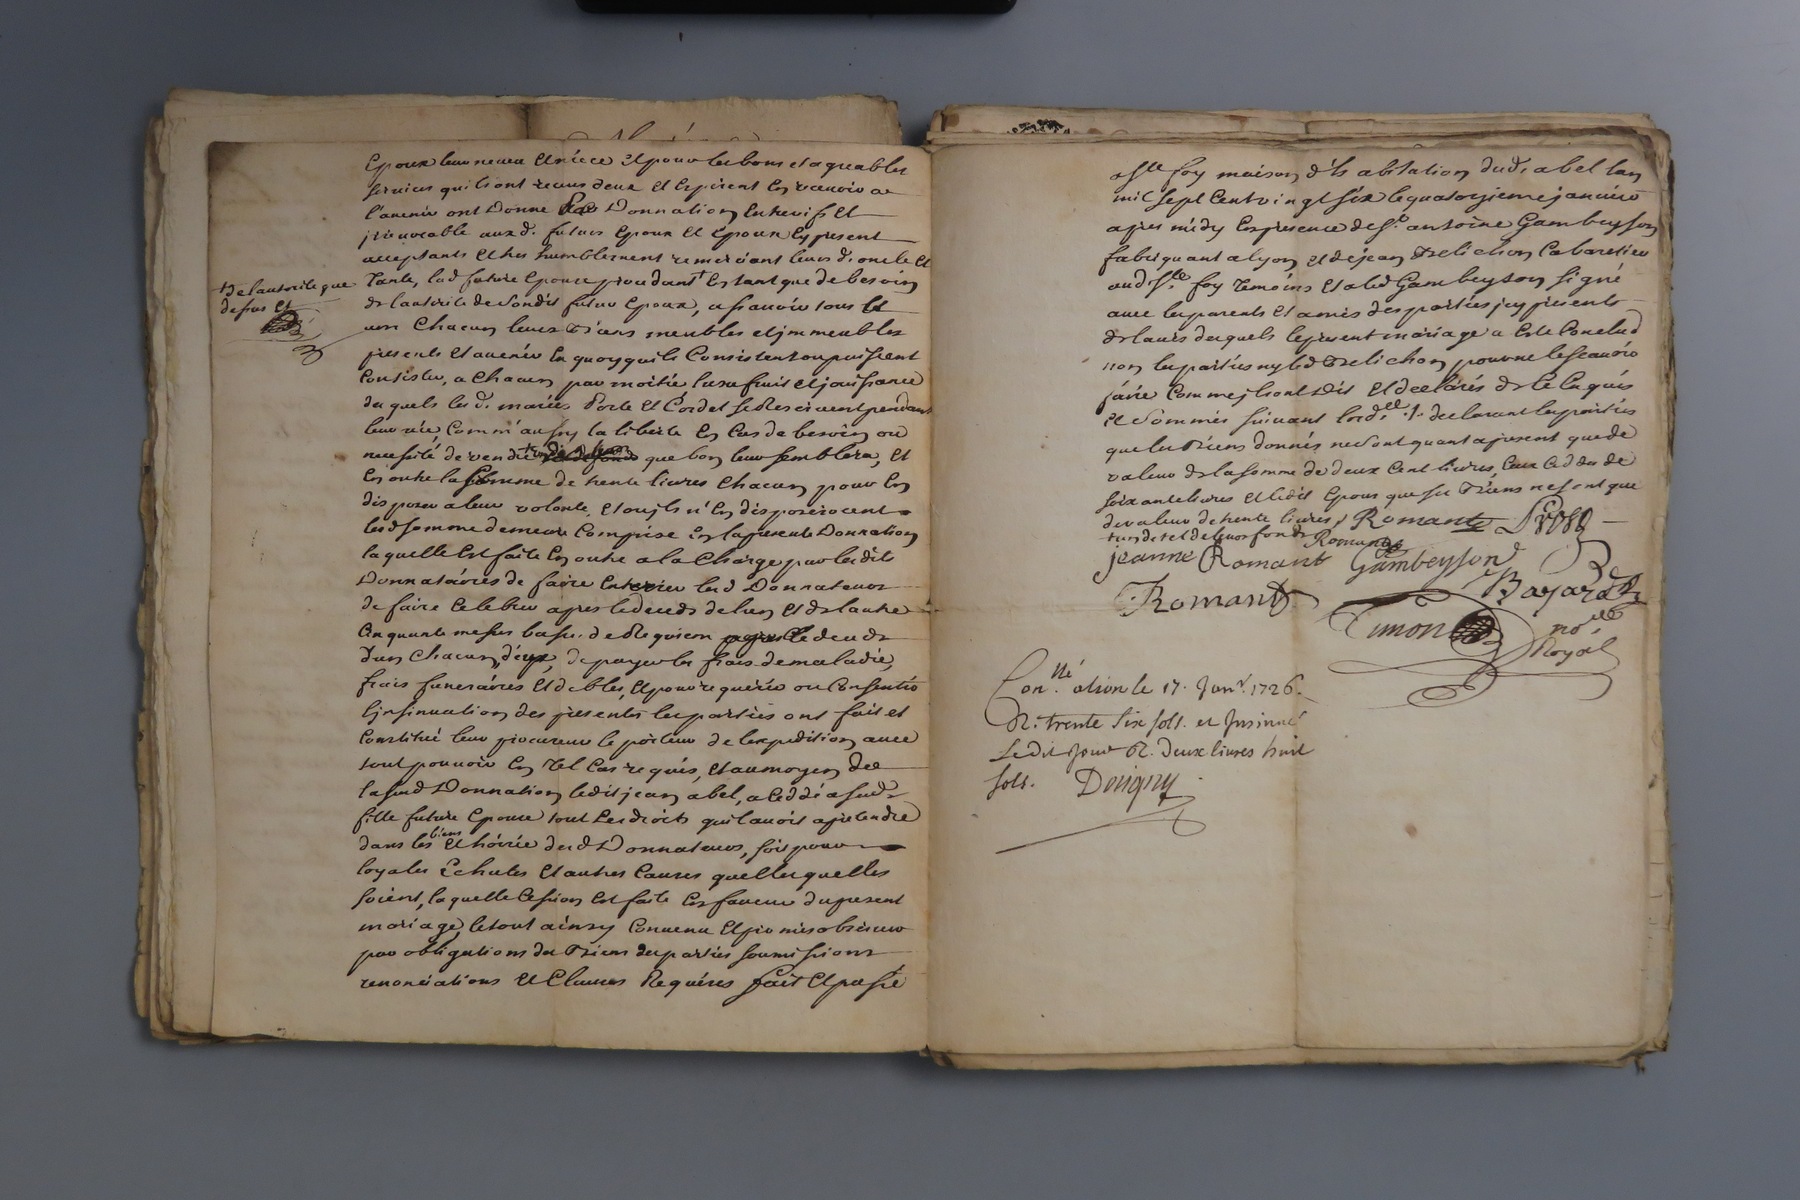 Epoux leur neveu et niece et pour les bons et agreables
services quils ont receus deux et esperent en recevoir a
l'avenir ont donné par Donnation entrevifs et
jrrevocable aux d. futurs epoux et epouse cy present
acceptants et tres humblement remerciant leurs d. oncle et
tante, lad future epouse procedant + en tant que de besoin
de lautorité de sondit futur epoux, a scavoir tous et
un chacun leurs biens meubles et jmmeubles
+ de lautorité que
dessus et
presents et avenir en quoy quils consistent ou puissent
consister, a chacun par moitié lusufruit et jouissance
du quels les d. mariés Porte et Cordet se reservent pendant
leur vie, comm'aussy la liberté en cas de besoin ou
necessité de vendre + que bon leur semblera, et
en outre la somme de trente livres chacun pour en
disposer a leur volonté, et ou jls n'en disposeroient
lesd somme demeure comprise en la presente Donnation
laquelle est faite en outre a la charge par lesdits
Donnataires de faire enterrer lesd Donnateurs
de faire celebrer apres le deceds de lun et de lautre
cinquante messes basses de Requiem apres le deceds
d'un chacun d'eux, de payer les frais de maladie,
frais funeraires et debtes, et pour requerir ou consentir
linsinuation des presentes les parties ont fait et
constitué leur procureur le porteur de lexpedition avec
tout pouvoir en tel cas requis, et au moyen de
la sud Donnation ledit jean abel, a ceddé a sad
fille future epouse tout les droits quil avoit a pretendre
dans les biens et hoirie desd Donnateurs, soit pour
loyales echutes et autres causes quelles quelles
soient, laquelle cession est faite en faveur du present
mariage, le tout ainsy convenu et promis observer
par obligations des biens des parties soumissions
renonciations et clauses Requises fait et passé
a Ste foy maison d'habitation dud. abel lan
mil sept cent vingt six le quatorzieme janvier
apres midy en presence de Sr. antoine Gambeyson
fabriquant a lyon et de jean Belichon cabaretier
aud Ste foy temoins et a led Gambeyson signé
avec les parents et amis des parties jcy presents
de lavis desquels le present mariage a esté conclud
non les parties ny led Belichon pour ne le scavoir
faire comme jls ont dit et declarés de ce enquis
et sommés suivant lord.ce ./. declarant les parties
que les biens donnés ne sont quant a present que de
valeur de la somme de deux cent livres, ceux ceddés de
soixante livres et ledit epoux que ses biens ne sont que
de valeur de trente livres, Romant
jeanne Romant Gambeyson
Romant Bayard
Simon no.re
Royal
Con.llé a lion le 17. Janv. 1726.
R. trente six sols. et Insinué
Ledit jour R. deux livres huit
sols. Devigny